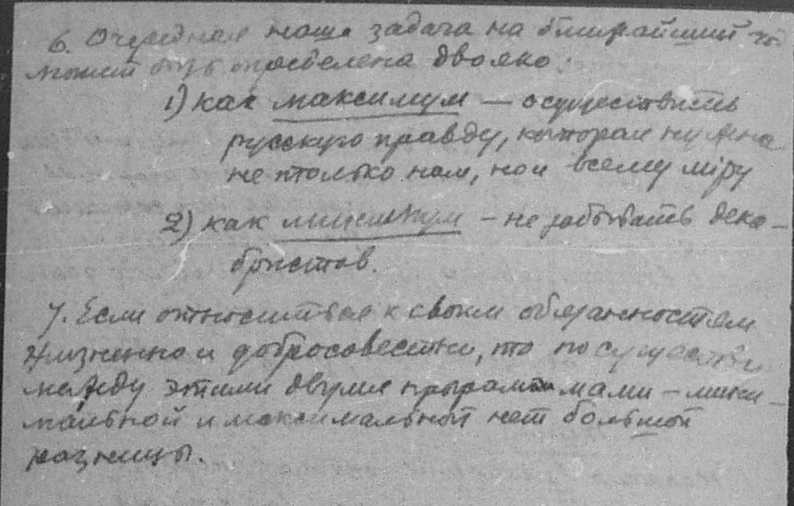 6. Очередная наша задача на ближайший
может быть определена двояко:
1) как максимум — осуществить
русскую правду, которая нужна
не только нам, но и всему мiру
2) как минимум — не забывать дека-
бристов.
7. Если относиться к своим обязанностям
жизненно и добросовестно, то по существу
между этими двумя программами — мини-
мальной и максимальной нет большой
разницы.